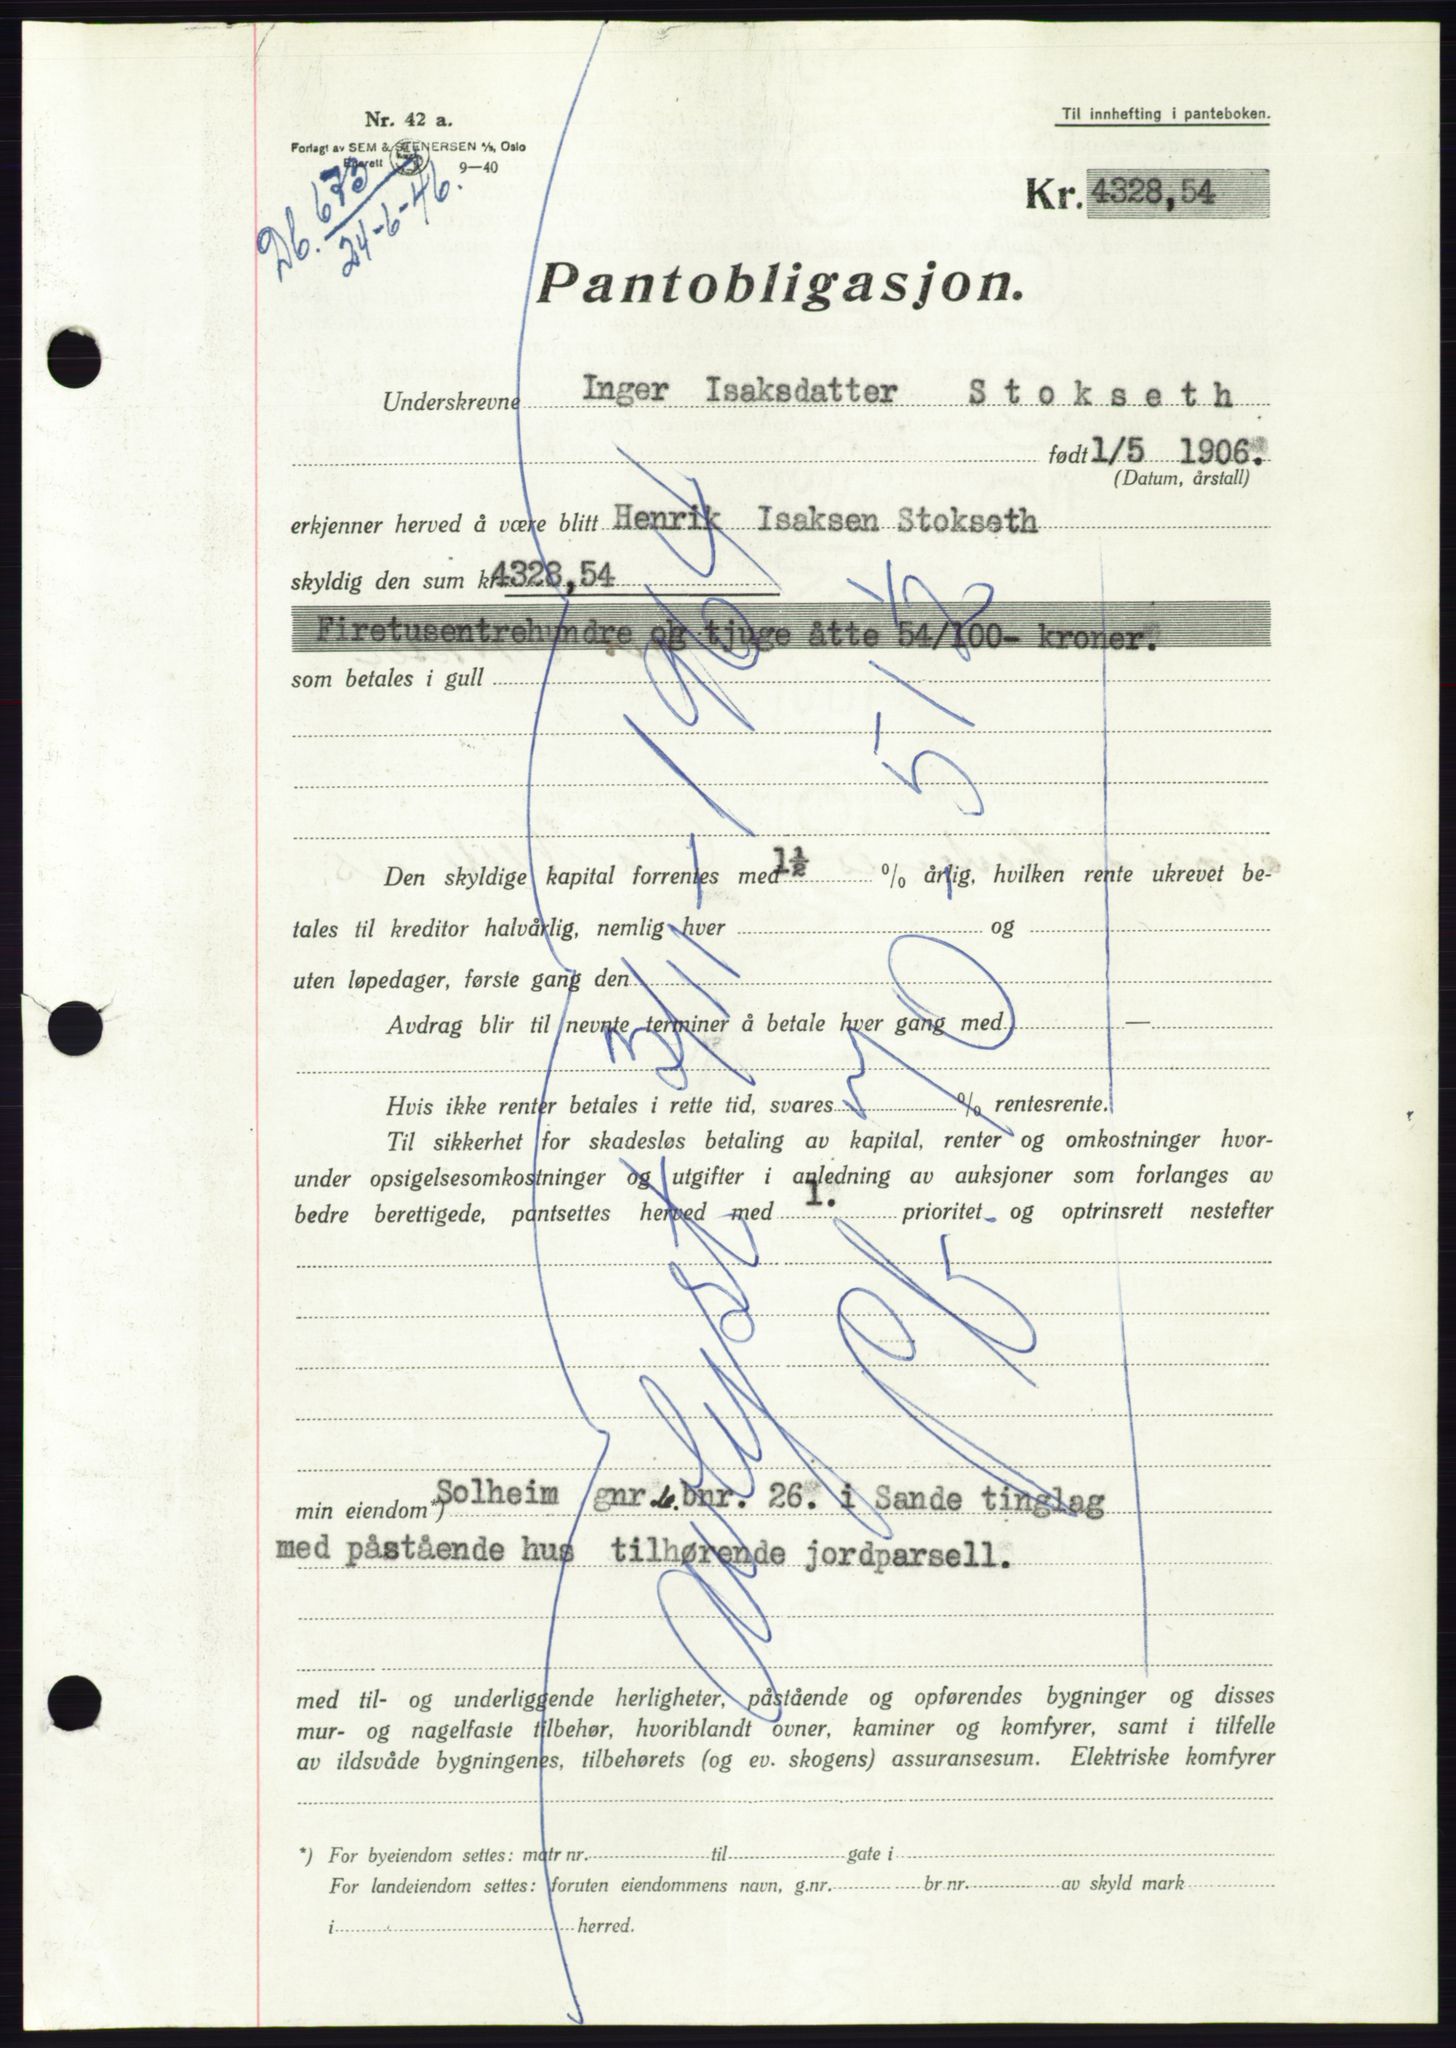 Nr. 42 a.
Forlagt av SEM & STENERSEN A/S, Oslo
Enerett 9—40
Db. 673
24-6-46.
Til innhefting i panteboken.
Kr. 4328,54
Pantobligasjon.
Underskrevne Inger Isaksdatter Stokseth
født 1/5 1906.
(Datum, årstall)
erkjenner herved å være blitt Henrik Isaksen Stokseth
skyldig den sum kr 4328,54
Firetusentrehundre og tjuge åtte 54/100- kroner.
som betales i gull
Den skyldige kapital forrentes med 1½ % årlig, hvilken rente ukrevet be-
tales til kreditor halvårlig, nemlig hver og
uten løpedager, første gang den
Avdrag blir til nevnte terminer å betale hver gang med —
Hvis ikke renter betales i rette tid, svares % rentesrente.
Til sikkerhet for skadesløs betaling av kapital, renter og omkostninger hvor-
under opsigelsesomkostninger og utgifter i anledning av auksjoner som forlanges av
bedre berettigede, pantsettes herved med 1. prioritet og optrinsrett nestefter
min eiendom*) Solheim gnr. bnr. 26. i Sande tinglag
med påstående hus tilhørende jordparsell.
med til- og underliggende herligheter, påstående og opførendes bygninger og disses
mur- og nagelfaste tilbehør, hvoriblandt ovner, kaminer og komfyrer, samt i tilfelle
av ildsvåde bygningenes, tilbehørets (og ev. skogens) assuransesum. Elektriske komfyrer
*) For byeiendom settes: matr nr. til gate i
For landeiendom settes: foruten eiendommens navn, g.nr. br nr. av skyld mark
i herred.
Avlyst 3/11-1964